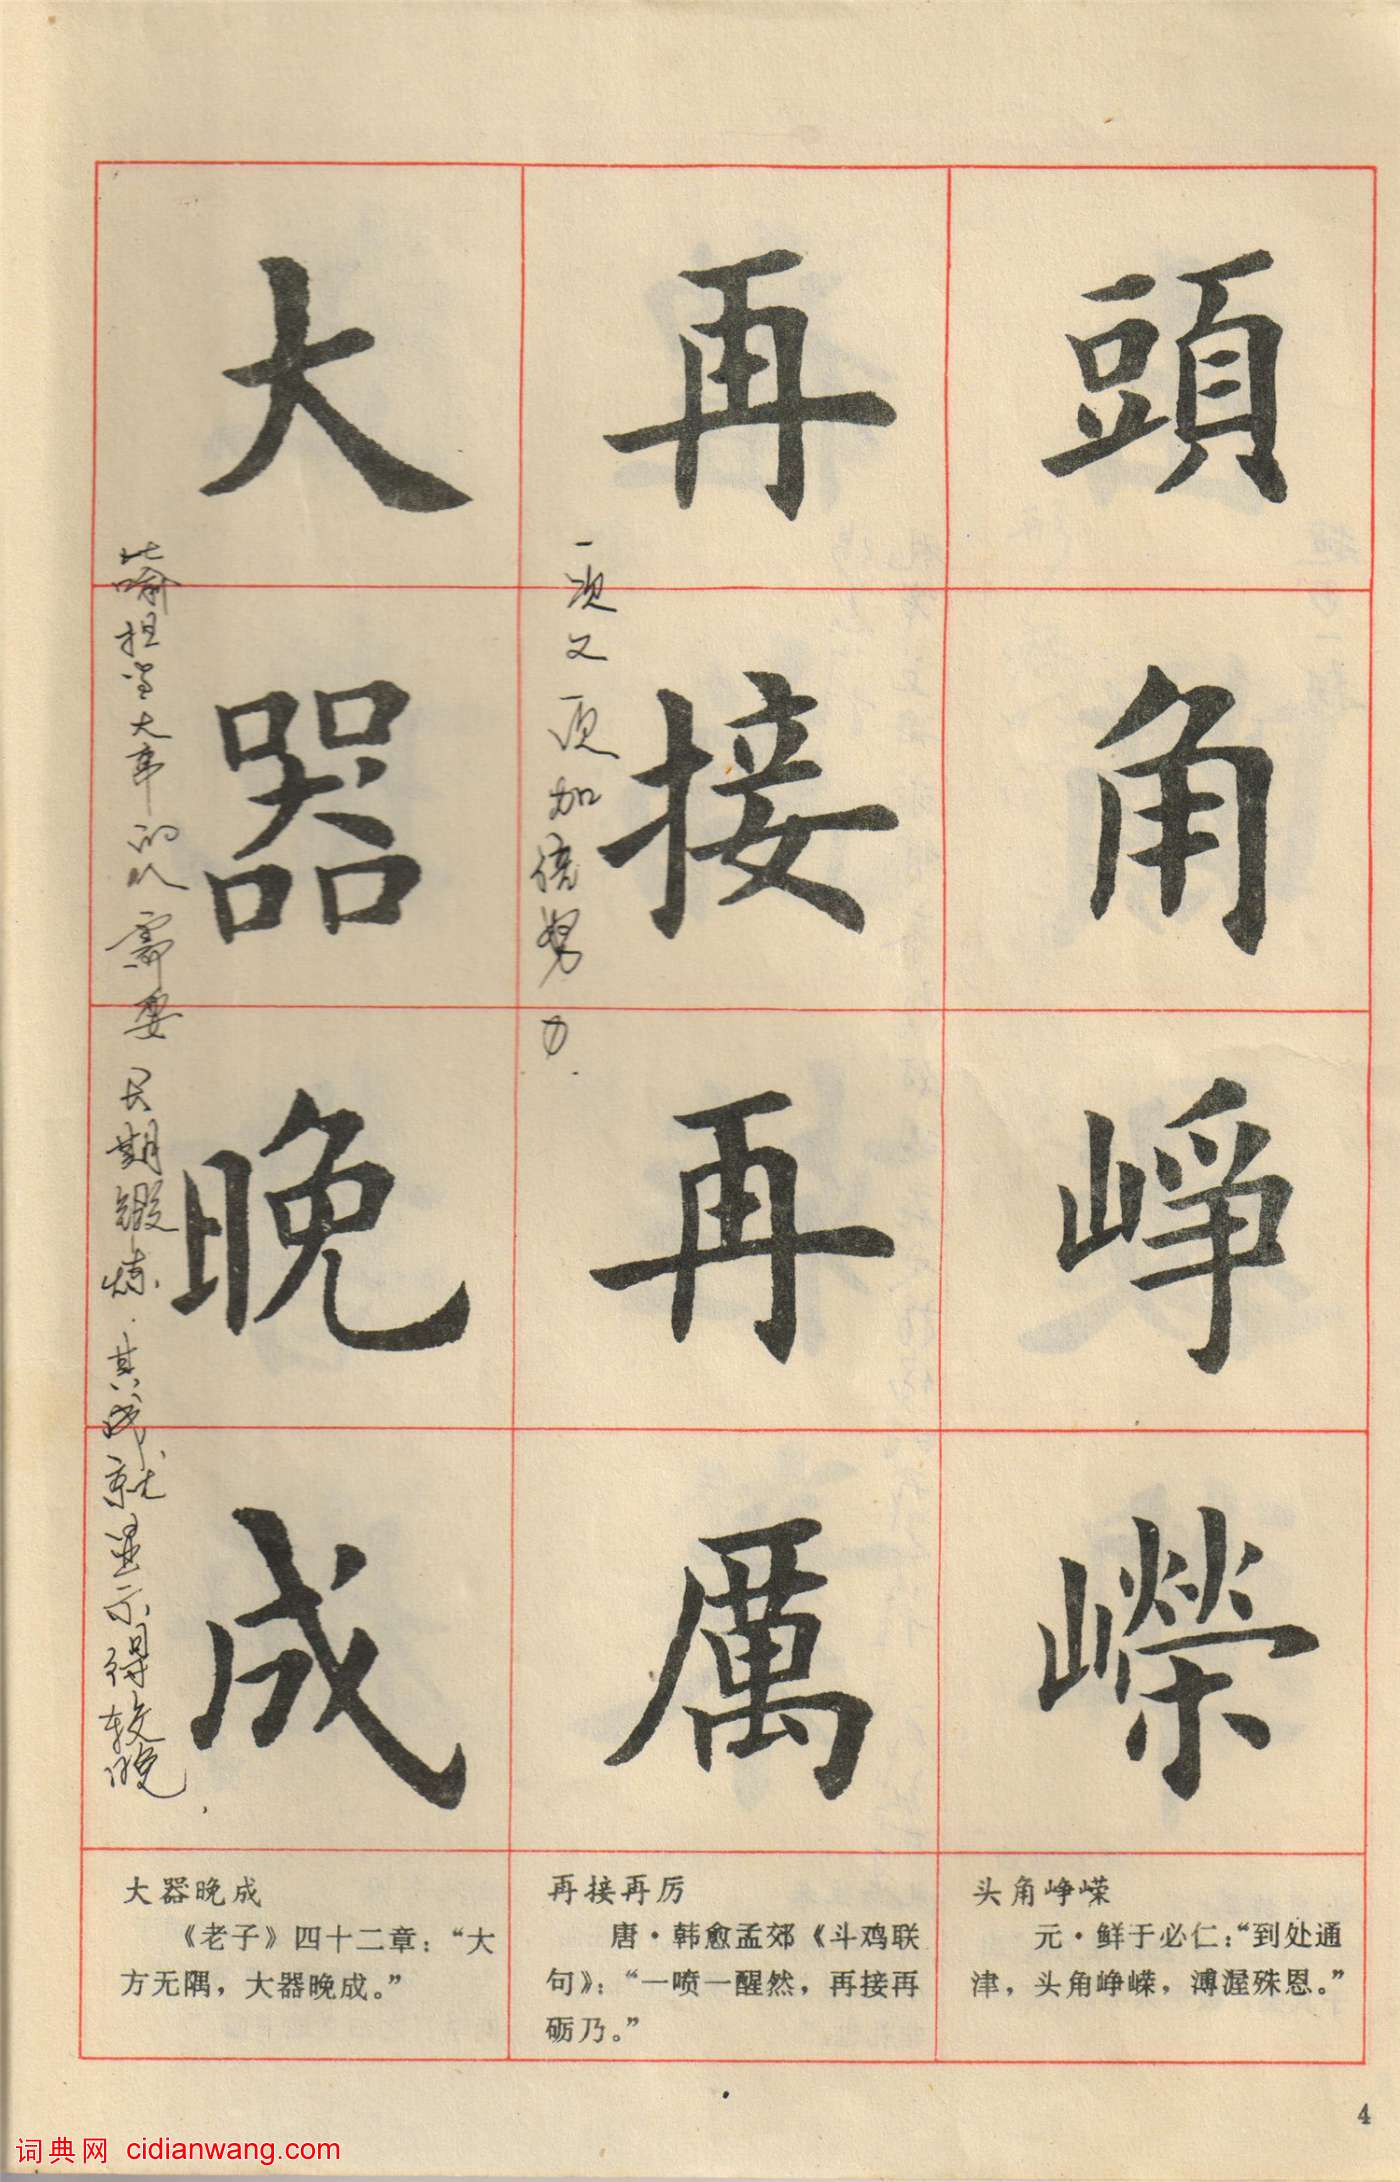 頭角崢嶸
再接再厲
大器晚成
一次又一次加倍努力.
比喻担当大事的人需要长期锻炼.其成就显示得较晚.
头角峥嵘
元·鲜于必仁:“到处通
津，头角峥嵘，溥渥殊恩。”
再接再厉
唐·韩愈孟郊《斗鸡联
句》：“一喷一醒然，再接再
砺乃。”
大器晚成
《老子》四十二章：“大
方无隅，大器晚成。”
4
词典网 cidianwang.com